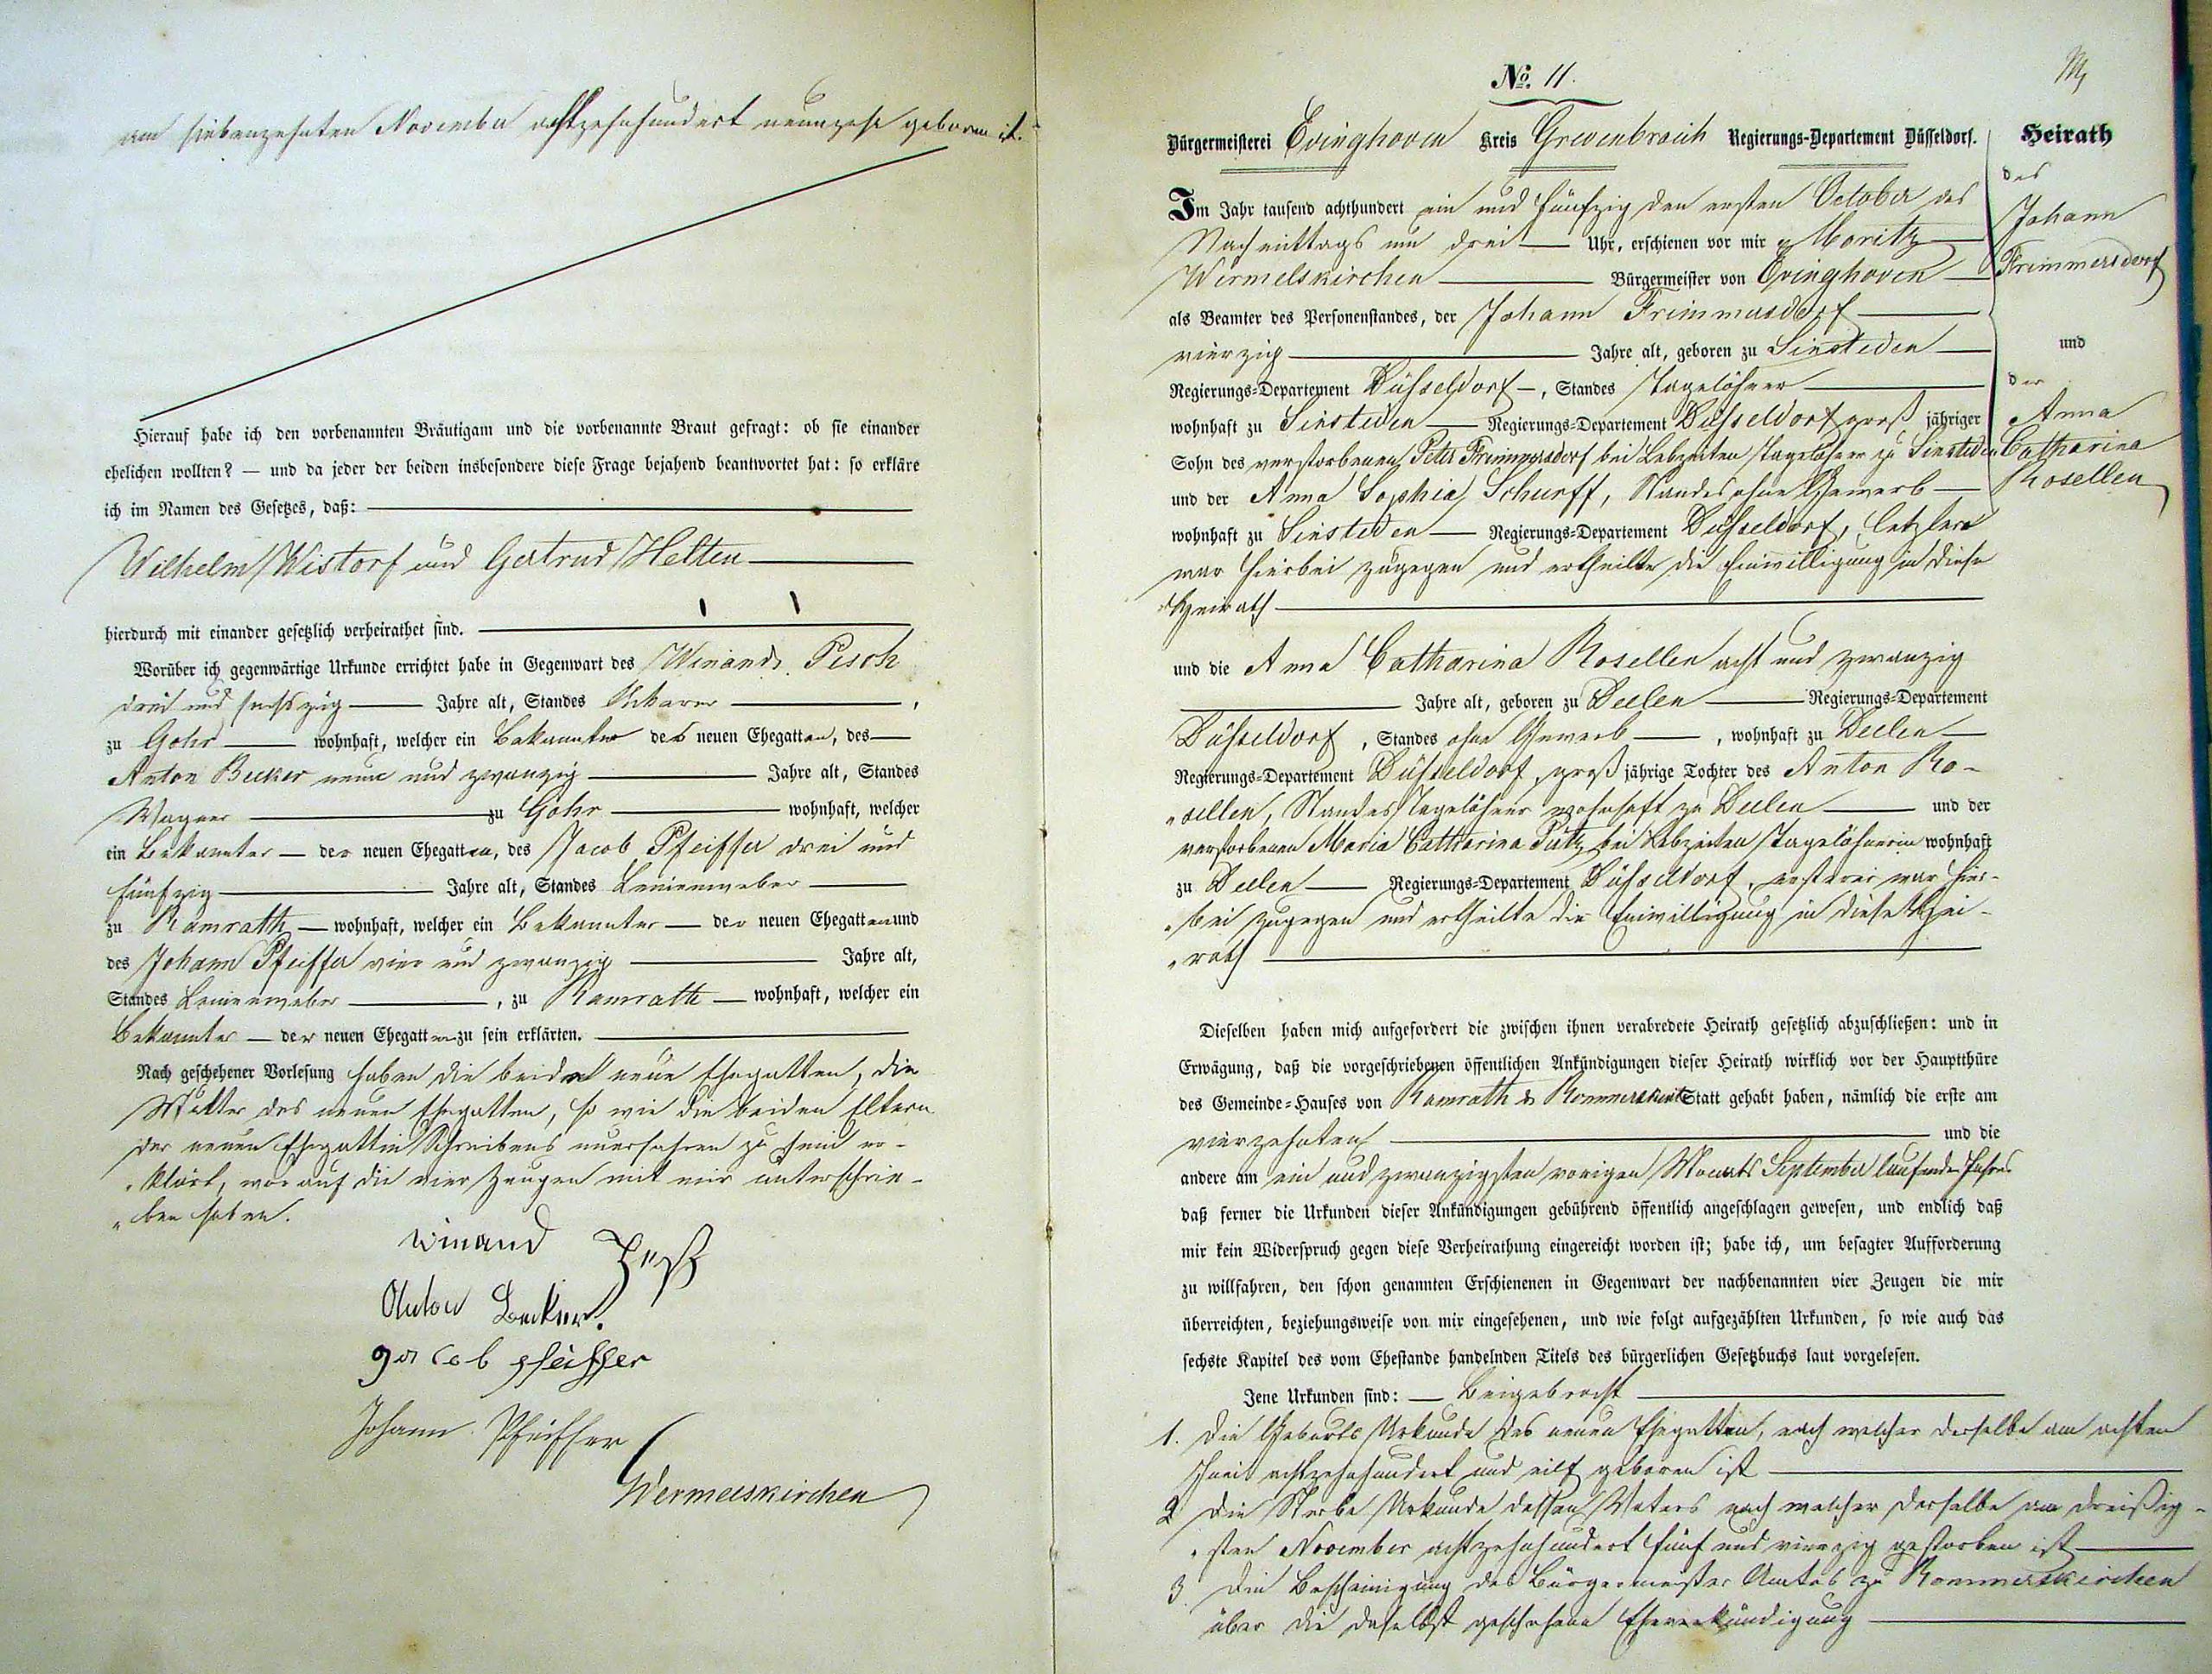 am siebenzehnten November achtzehnhundert neunzehn geboren ist.
Hierauf habe ich den vorbenannten Bräutigam und die vorbenannte Braut gefragt: ob sie einander
ehelichen wollten? — und da jeder der beiden insbesondere diese Frage bejahend beantwortet hat: so erkläre
ich im Namen des Gesetzes, daß:
Wilhelm Wistorf und Gertrud Helten
hierdurch mit einander gesetzlich verheirathet sind.
Worüber ich gegenwärtige Urkunde errichtet habe in Gegenwart des Winand Pesch
drei und sechszig Jahre alt, Standes Ackerer,
zu Gohr wohnhaft, welcher ein Bekannter der neuen Ehegatten, des
Anton Becker neun und zwanzig Jahre alt, Standes
Wagner zu Gohr wohnhaft, welcher
ein Bekannter der neuen Ehegatten, des Jacob Pfeiffer drei und
fünfzig Jahre alt, Standes Leinenweber
zu Ramrath wohnhaft, welcher ein Bekannter der neuen Ehegatten und
des Johann Pfeiffer vier und zwanzig Jahre alt,
Standes Leinenweber, zu Ramrath wohnhaft, welcher ein
Bekannter der neuen Ehegatten zu sein erklärten.
Nach geschehener Vorlesung haben die beiden neue Ehegatten, die
Mutter des neuen Ehegatten, so wie die beiden Eltern
der neuen Ehegattin Schreibens unerfahren zu sein er-
klärt, worauf die vier Zeugen mit mir unterschrie-
ben haben.
Winand Pesch
Anton Becker.
Jacob pfeiffer
Johann Pfeiffer
Wermelskirchen
No. 11.
Bürgermeisterei Evinghoven Kreis Grevenbroich Regierungs-Departement Düsseldorf.
Im Jahr tausend achthundert ein und fünfzig den ersten October des
Nachmittags um drei Uhr, erschienen vor mir Moritz
Wermelskirchen Bürgermeister von Evinghoven
als Beamter des Personenstandes, der Johann Frimmersdorf
vierzig Jahre alt, geboren zu Sinsteden
Regierungs-Departement Düsseldorf, Standes Tagelöhner
wohnhaft zu Sinsteden Regierungs-Departement Düsseldorf groß jähriger
Sohn des verstorbenen Peter Frimmersdorf bei Lebzeiten Tagelöhner zu Sinsteden
und der Anna Sophia Schurff, Standes ohne Gewerb
wohnhaft zu Sinsteden Regierungs-Departement Düsseldorf, letztere
war hierbei zugegen und ertheilte die Einwilligung in diese
Heirath
und die Anna Catharina Rosellen acht und zwanzig
Jahre alt, geboren zu Deelen Regierungs-Departement
Düsseldorf, Standes ohne Gewerb, wohnhaft zu Deelen
Regierungs-Departement Düsseldorf, groß jährige Tochter des Anton Ro-
sellen, Standes Tagelöhner wohnhaft zu Deelen und der
verstorbenen Maria Catharina Pütz bei Lebzeiten Tagelöhnerin wohnhaft
zu Deelen Regierungs-Departement Düsseldorf, ersterer war hier-
bei zugegen und ertheilte die Einwilligung in diese Hei-
rath
Dieselben haben mich aufgefordert die zwischen ihnen verabredete Heirath gesetzlich abzuschließen: und in
Erwägung, daß die vorgeschriebenen öffentlichen Ankündigungen dieser Heirath wirklich vor der Hauptthüre
des Gemeinde-Hauses von Ramrath & Rommerskirch Statt gehabt haben, nämlich die erste am
vierzehnten und die
andere am ein und zwanzigsten vorigen Monats September laufenden Jahres
daß ferner die Urkunden dieser Ankündigungen gebührend öffentlich angeschlagen gewesen, und endlich daß
mir kein Widerspruch gegen diese Verheirathung eingereicht worden ist; habe ich, um besagter Aufforderung
zu willfahren, den schon genannten Erschienenen in Gegenwart der nachbenannten vier Zeugen die mir
überreichten, beziehungsweise von mir eingesehenen, und wie folgt aufgezählten Urkunden, so wie auch das
sechste Kapitel des vom Ehestande handelnden Titels des bürgerlichen Gesetzbuchs laut vorgelesen.
Jene Urkunden sind: Beigebracht
1. Die Geburts Urkunde des neuen Ehegatten, nach welcher derselbe am achten
Juni achtzehnhundert und eilf geboren ist
2 Die Sterbe Urkunde dessen Vaters nach welcher derselbe am dreißig-
sten November achtzehnhundert fünf und vierzig gestorben ist
3. Die Bescheinigung des Bürgermeister Amtes zu Rommerskirchen
über die daselbst geschehene Eheverkündigung
Heirath
des
Johann
Frimmersdorf
und
der
Anna
Catharina
Rosellen